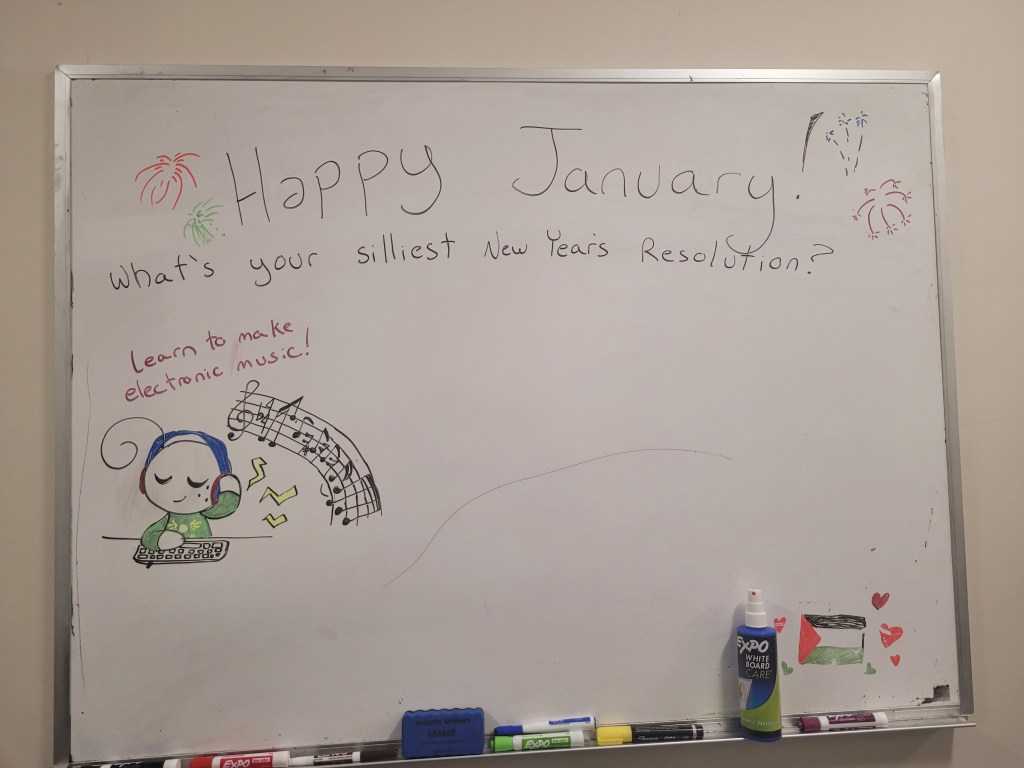 Happy January!
What's your silliest New Year's Resolution?
Learn to make
electronic music!
EXPO
WHITE
BOARD
CARE
ERASER
EXPO
EXPO